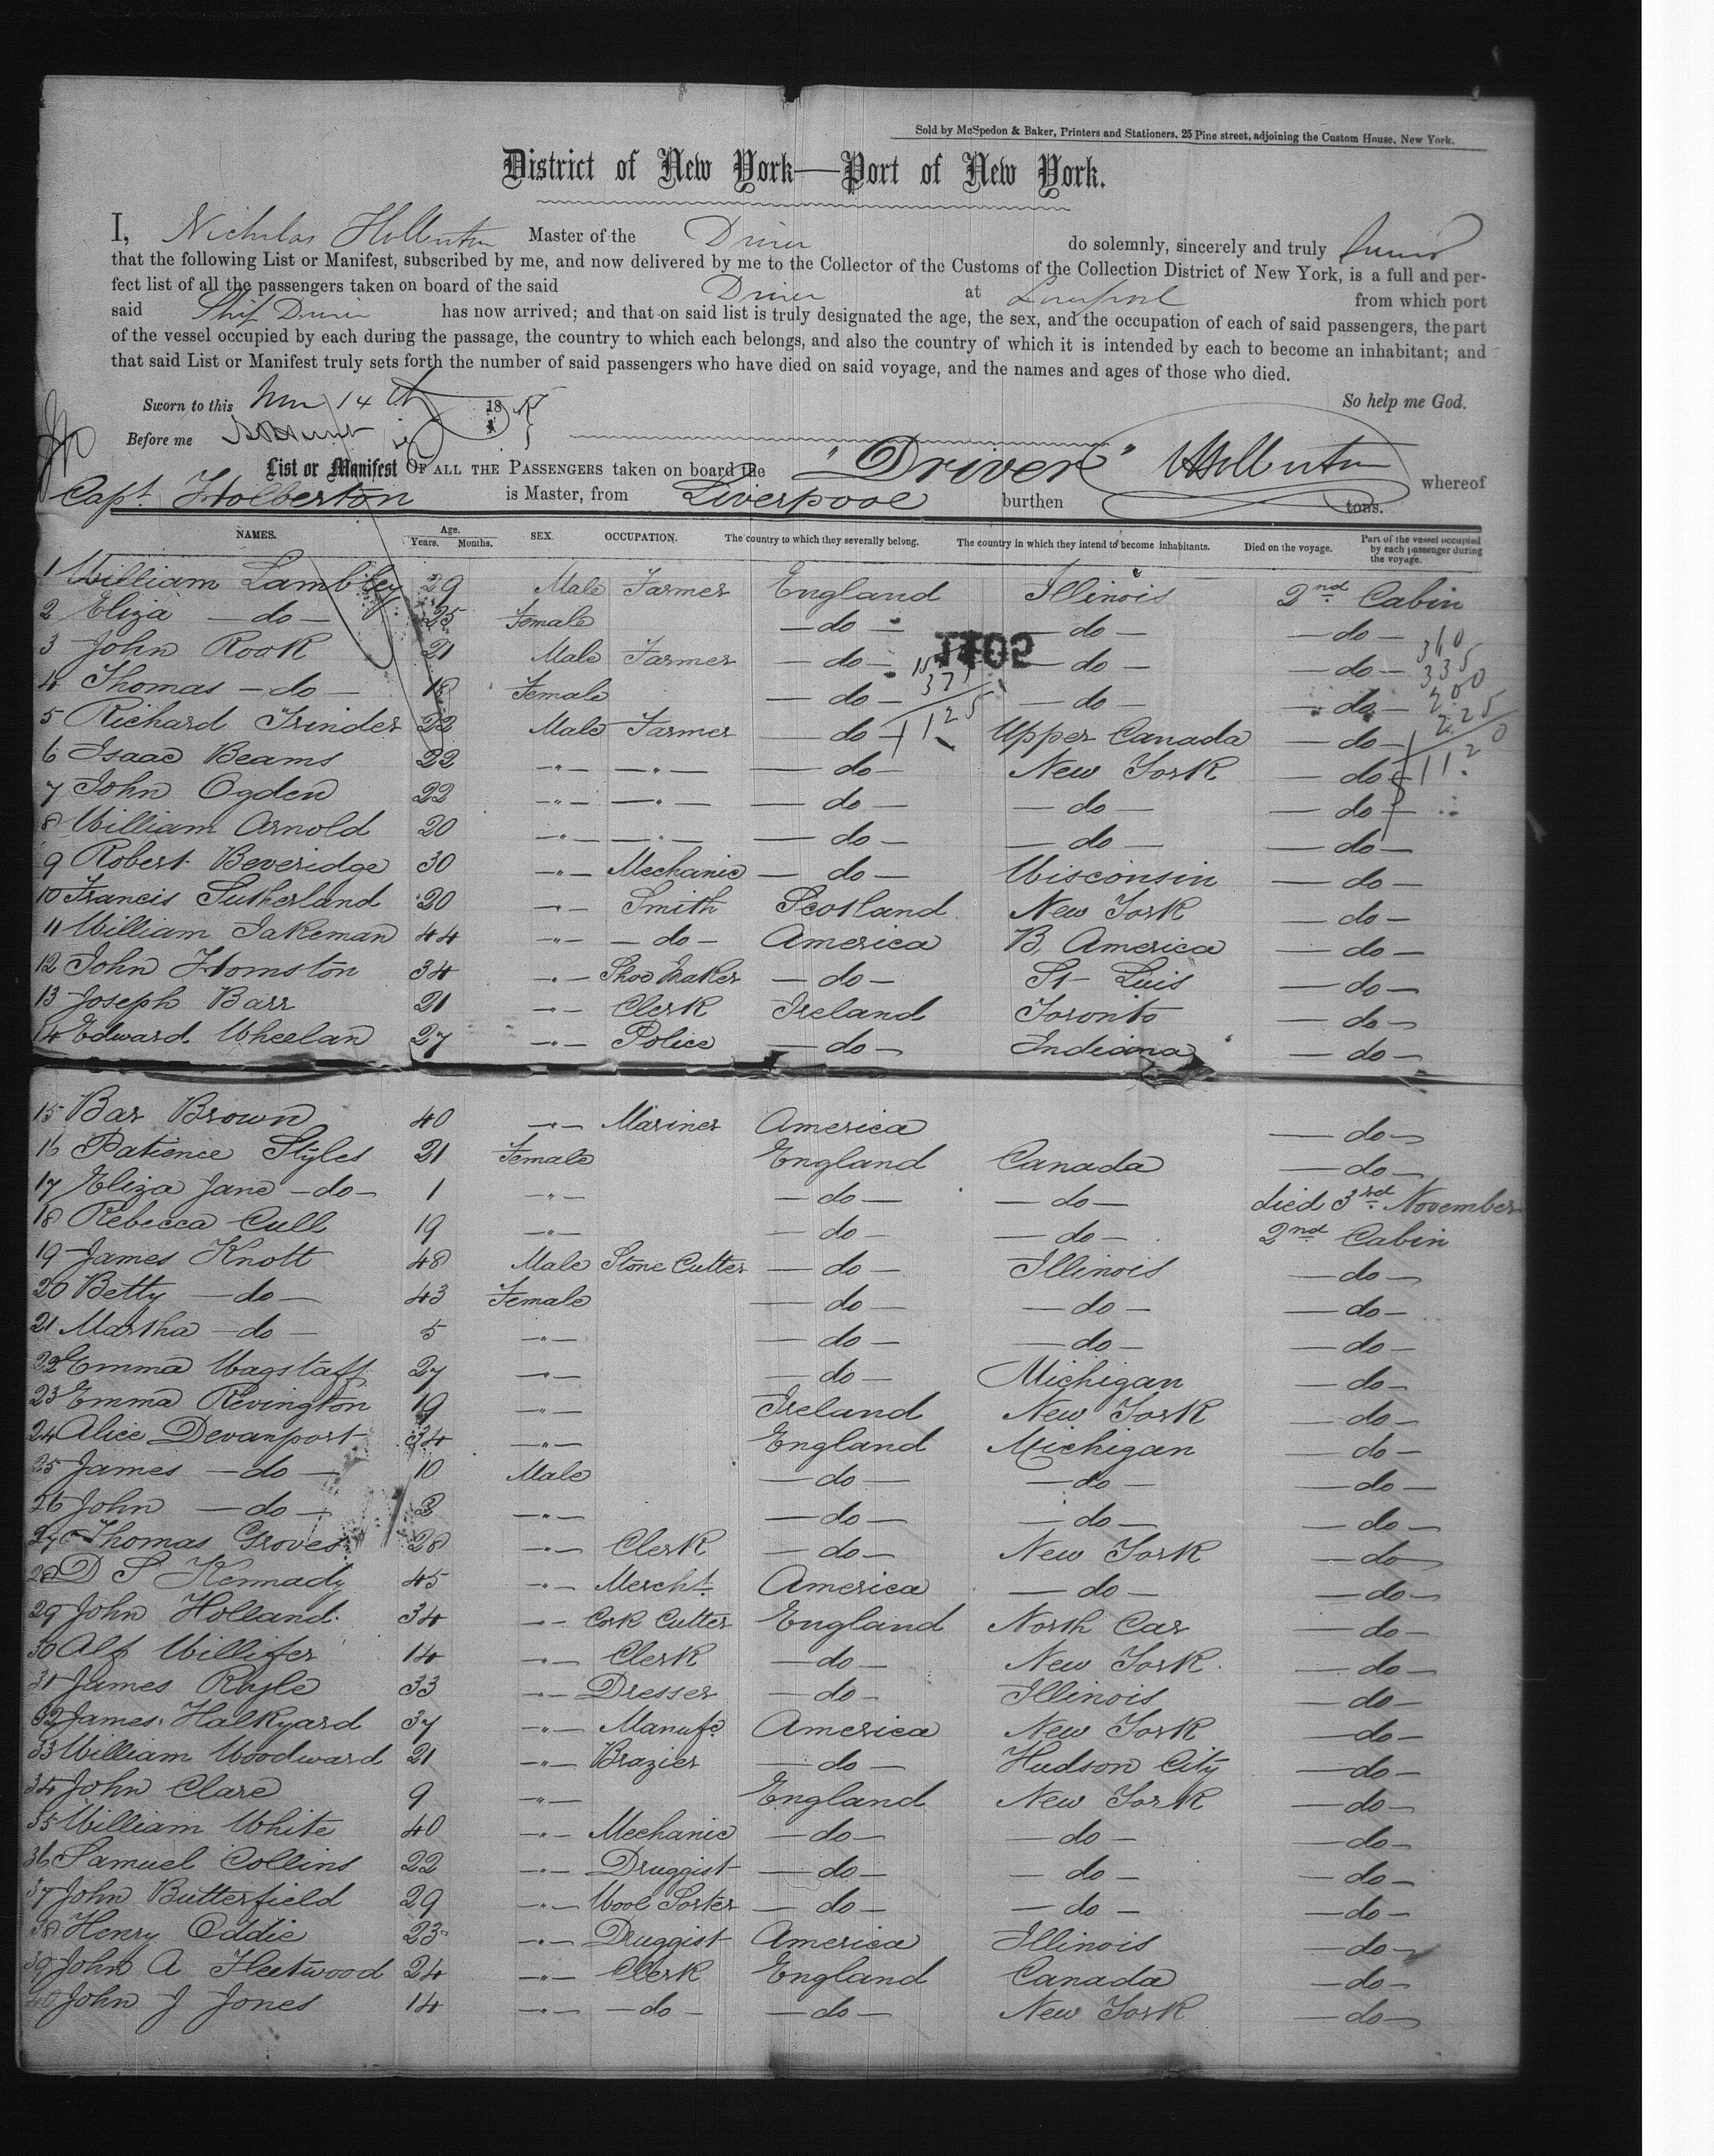 Sold by McSpedon & Baker, Printers and Stationers, 25 Pine street, adjoining the Custom House, New York.
District of New York—Port of New York.
I, Nicholas Holberton Master of the Driver do solemnly, sincerely and truly swear
that the following List or Manifest, subscribed by me, and now delivered by me to the Collector of the Customs of the Collection District of New York, is a full and per-
fect list of all the passengers taken on board of the said Driver at Liverpool from which port
said Ship Driver has now arrived; and that on said list is truly designated the age, the sex, and the occupation of each of said passengers, the part
of the vessel occupied by each during the passage, the country to which each belongs, and also the country of which it is intended by each to become an inhabitant; and
that said List or Manifest truly sets forth the number of said passengers who have died on said voyage, and the names and ages of those who died.
Sworn to this Nov 14th 18 So help me God.
Before me
List or Manifest OF ALL THE PASSENGERS taken on board the "Driver" NHolberton whereof
Capt. Holberton is Master, from Liverpool burthen tons.
NAMES. Age. Years. Months. SEX. OCCUPATION. The country to which they severally belong. The country in which they intend to become inhabitants. Died on the voyage. Part of the vessel occupied by each passenger during the voyage.
1 William Lambley 29 Male Farmer England Illinois 2nd Cabin
2 Eliza —do— 25 Female —do— —do— —do— 310
1109
3 John Rook 21 Male Farmer —do— —do— —do— 335
4 Thomas —do— 18 Female —do— 375 —do— —do— 200
5 Richard Trinder 22 Male Farmer —do— 1125 Upper Canada —do— 225
6 Isaac Beams 22 —"— —"— —do— New York —do— 1120
7 John Ogden 22 —"— —"— —do— —do— —do—
8 William Arnold 20 —"— —"— —do— —do— —do—
9 Robert Beveridge 30 —"— Mechanic —do— Wisconsin —do—
10 Francis Sutherland 20 —"— Smith Scotland New York —do—
11 William Jakeman 44 —"— —do— America B. America —do—
12 John Homston 34 —"— Shoe Maker —do— St Luis —do—
13 Joseph Barr 21 —"— Clerk Ireland Toronto —do—
14 Edward Wheelan 27 —"— Police —do— Indiana —do—
15 Bar Brown 40 —"— Mariner America —do—
16 Patience Styles 21 Female England Canada —do—
17 Eliza Jane —do— 1 —"— —do— —do— died 3rd November
18 Rebecca Cull 19 —"— —do— —do— 2nd Cabin
19 James Knott 48 Male Stone Cutter —do— Illinois —do—
20 Betty —do— 43 Female —do— —do— —do—
21 Martha —do— 5 —"— —do— —do— —do—
22 Emma Wagstaff 27 —"— —do— Michigan —do—
23 Emma Revington 19 —"— Ireland New York —do—
24 Alice Devanport 34 —"— England Michigan —do—
25 James —do— 10 Male —do— —do— —do—
26 John —do— —"— —do— —do— —do—
27 Thomas Groves 28 —"— Clerk —do— New York —do—
28 D S Kennady 45 —"— Mercht America —do— —do—
29 John Holland 34 —"— Cork Cutter England North Car —do—
30 Alf Willifer 14 —"— Clerk —do— New York —do—
31 James Royle 33 —"— Dresser —do— Illinois —do—
32 James Halkyard 37 —"— Manufr America New York —do—
33 William Woodward 21 —"— Brazier —do— Hudson City —do—
34 John Clare 9 —"— England New York —do—
35 William White 40 —"— Mechanic —do— —do— —do—
36 Samuel Collins 22 —"— Druggist —do— —do— —do—
37 John Butterfield 29 —"— Wool Sorter —do— —do— —do—
38 Henry Oddie 23 —"— Druggist America Illinois —do—
39 John A Fleetwood 24 —"— Clerk England Canada —do—
40 John J Jones 14 —"— —do— —do— New York —do—